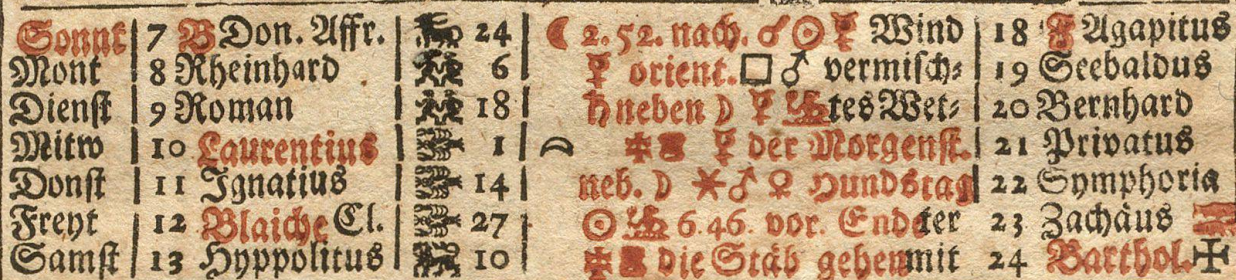 Sonnt 7 B Don. Affr. 24 ☾ 2. 52. nach. ☌ ☉ ☿ Wind 18 Agapitus
Mont 8 Rheinhard 6 ☿ orient. □ ♂ vermisch⸗ 19 Seebaldus
Dienst 9 Roman 18 ♄ neben ☽ ☿ tes Wet⸗ 20 Bernhard
Mitw 10 Laurentius 1 ☿ der Morgenst. 21 Privatus
Donst 11 Ignatius 14 neb. ☽ ⚹ ♂ ♀ Hundstag 22 Symphoria
Freyt 12 Blaiche Cl. 27 ☉ 6.46. vor. Ende ter 23 Zachäus
Samst 13 Hyppolitus 10 ✠ die Stäb geben mit 24 Barthol. ✠